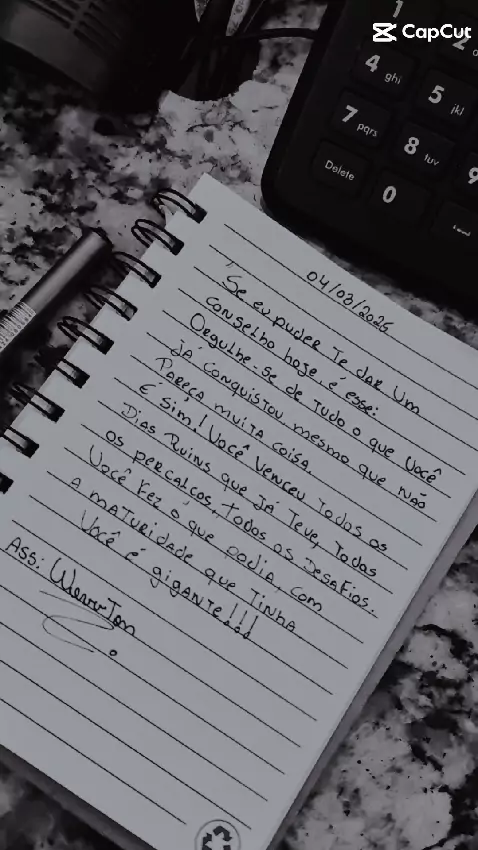 CapCut
1
2
4 ghi
5 jkl
7 pqrs
8 tuv
9
Delete
0
04/03/2026
"Se eu puder Te dar um
conselho hoje, é esse:
Orgulhe-se de tudo o que você
já conquistou, mesmo que não
pareça muita coisa.
É sim! Você venceu todos os
Dias Ruins que já teve, todos
os percalços, todos os Desafios.
Você fez o que podia, com
a maturidade que tinha
Você é gigante!!!
Ass: Wewerton